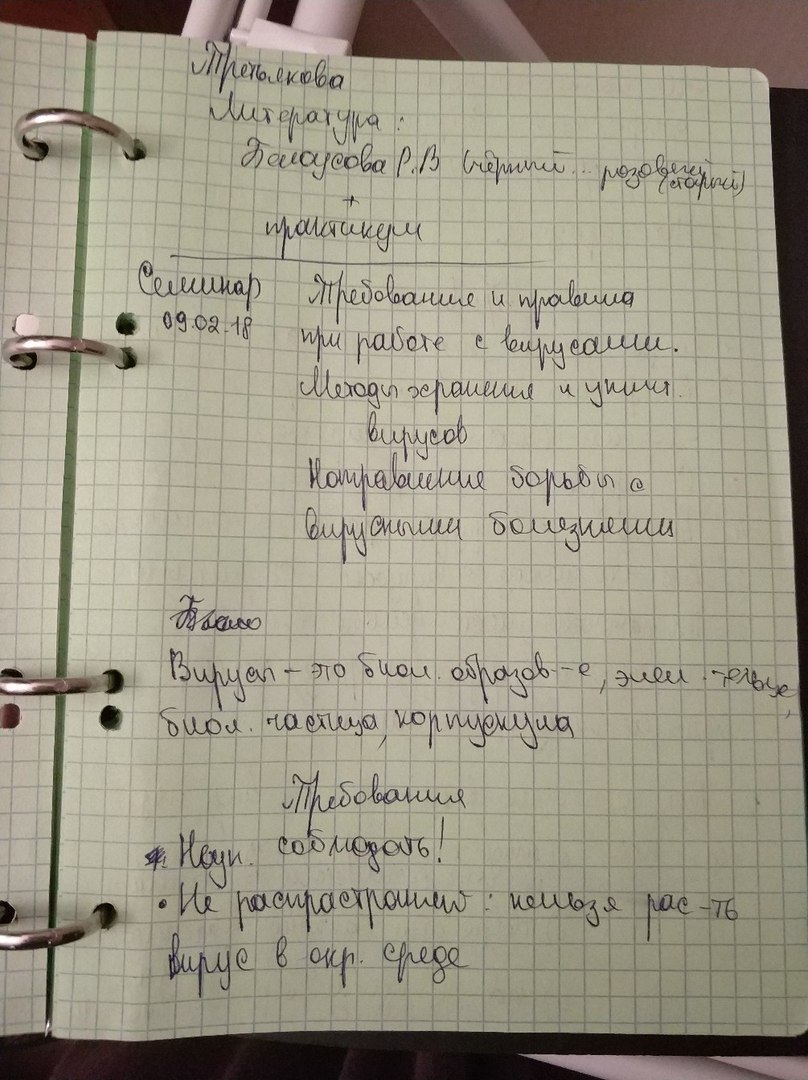 Третьякова
Литература:
Белоусова Р.В (чёрный... розовенький
(старый)
+
практикум
Семинар Требование и правила
09.02.18 при работе с вирусами.
Методы хранения и уничт.
вирусов
Направление борьбы с
вирусными болезнями
Вирусы - это биол. образов-е, элем. тельце,
биол. частица, корпускула
Требования
соблюдать!
• Не распрастронять: нельзя рас-ть
вирус в окр. среде